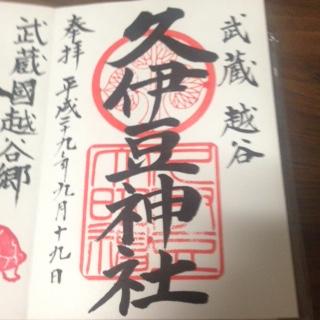 武蔵 越谷
久伊豆神社
奉拝 平成二十九年九月十九日
武蔵國越谷郷